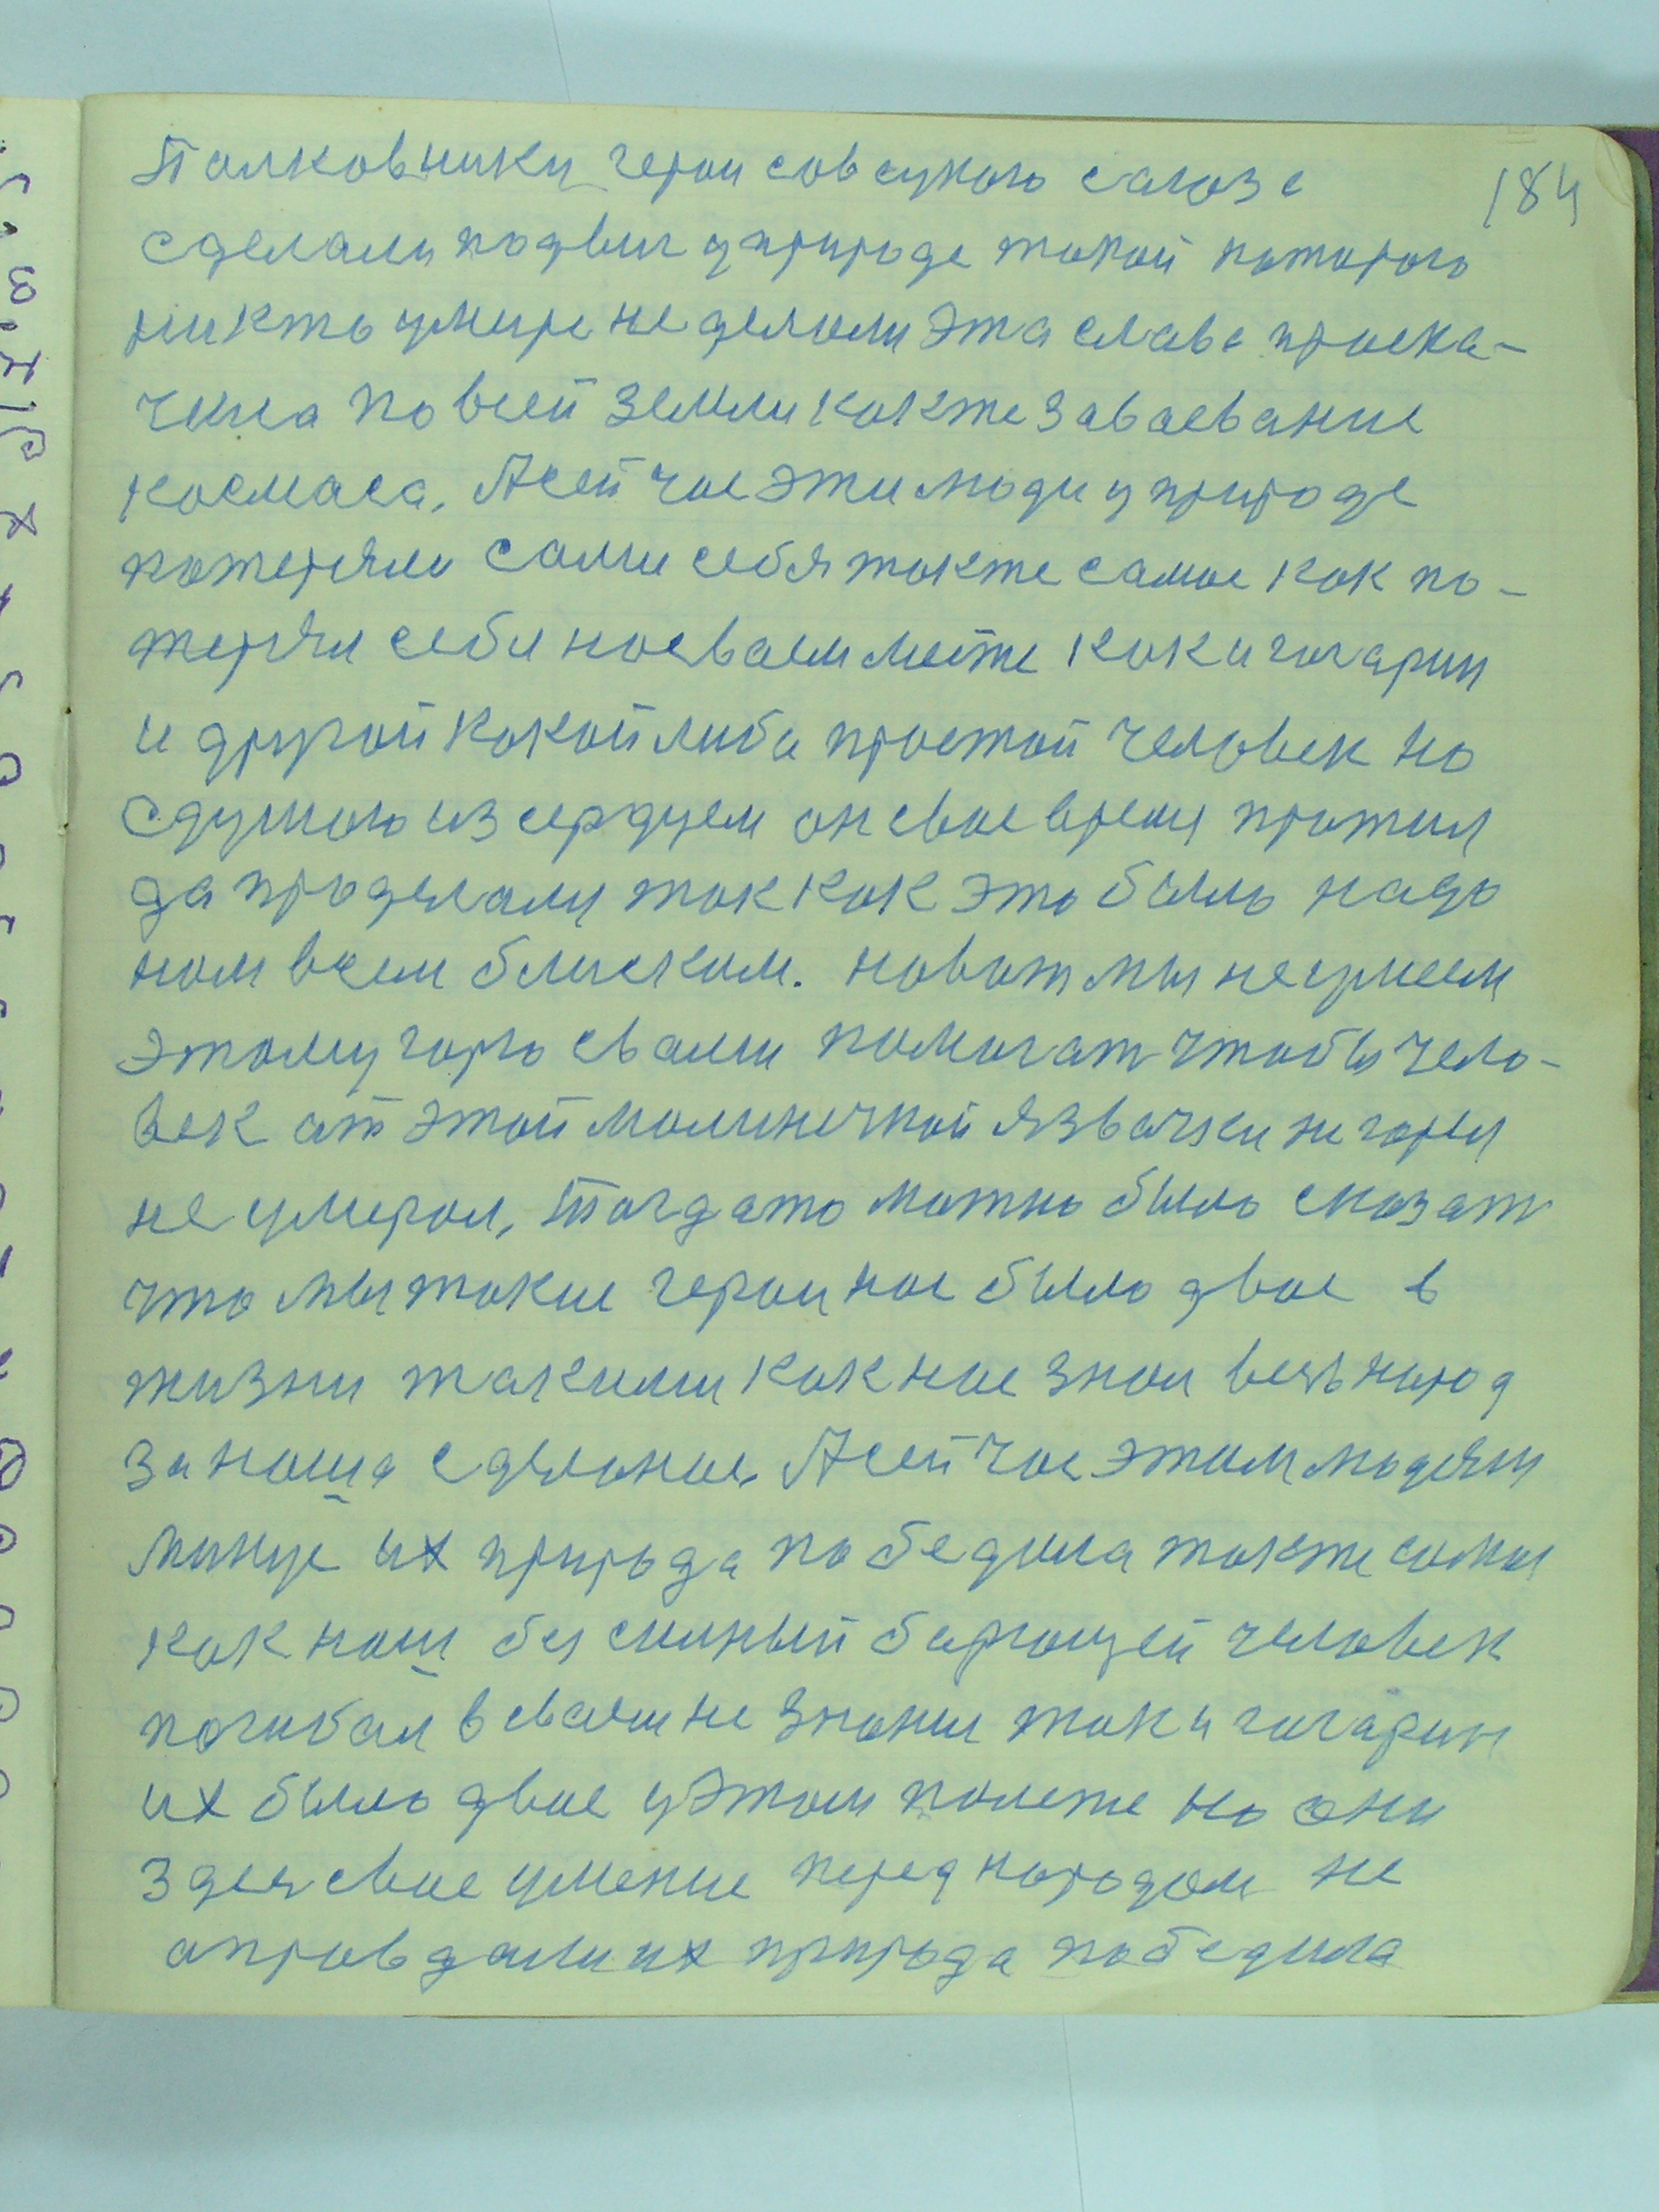 184
Палковники герои совецкого саюза
сделали подвиг уприроде токой которого
никто умире не делали эта слава проска-
чила повсей земли какже заваевание
космаса, Асейчас эти люди уприроде
потеряли сами себя также самое как по-
терял себя насваем месте как и гагарин
и другой какойлиба простой человек но
сдушою изсердцем он свое время прожил
да проделал так как это было надо
нам всем блиским. новот мы неумеем
этому горю свами помогат чтобы чело-
век ат этой малинечкой язвачки не горел
не умерал, тогдато можно было сказат
что мы такие герои нас было двое в
жизни такими как нас знал весь народ
за наша сделаное. Асейчас этим людям
их природа победила также самое
как наш бесилный балющей человек
погибал всваем не знании так и гагарин
их было двое уэтом полете но они
здесь свое умение перед народом не
аправдали их природа победила